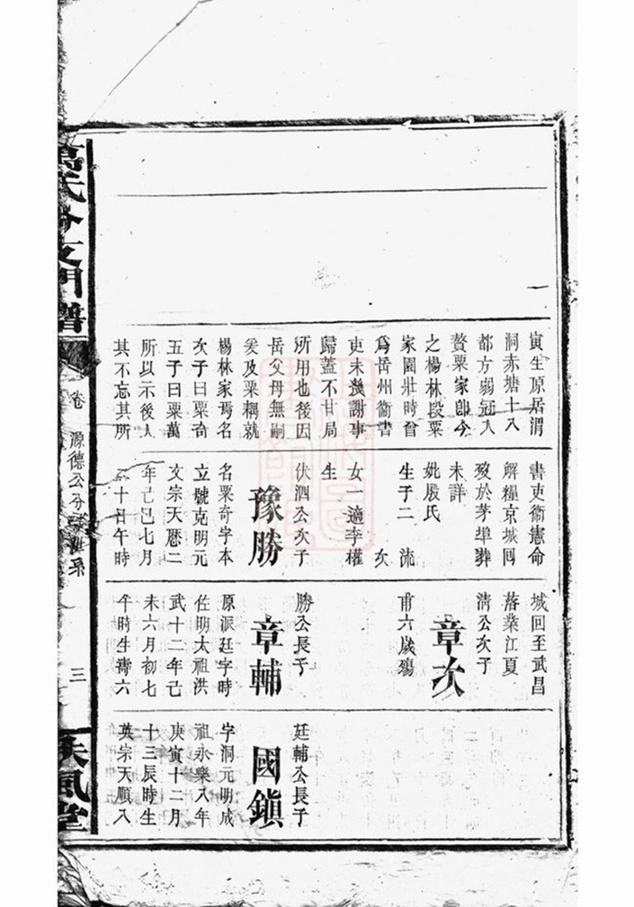 寅生原居渭
洞赤塘十八
都方弱冠入
贅粟家卽今
之楊林段粟
家園壯時曾
爲岳州衞書
吏未幾謝事
歸蓋不甘局
所用也後因
岳父母無嗣
爰及粟耦就
楊林家焉名
次子曰粟奇
五子曰粟萬
所以示後人
其不忘其所
書吏衞憲命
解糧京城回
歿於茅埠葬
未詳
妣殷氏
生子二 流 次
女一適李權
生
伏泗公次子
豫勝
名粟奇字本
立號克明元
文宗天厯二
年己巳七月
十日午時
城回至武昌
落業江夏
清公次子
章次
甫六歲殤
勝公長子
章輔
原派廷字時
佐明太祖洪
武十二年己
未六月初七
午時生壽六
廷輔公長子
國鎮
字洞元明成
祖永樂八年
庚寅十二月
十三辰時生
英宗天順八
萬氏分支閂譜
卷
源德公分
系
三
扶風堂